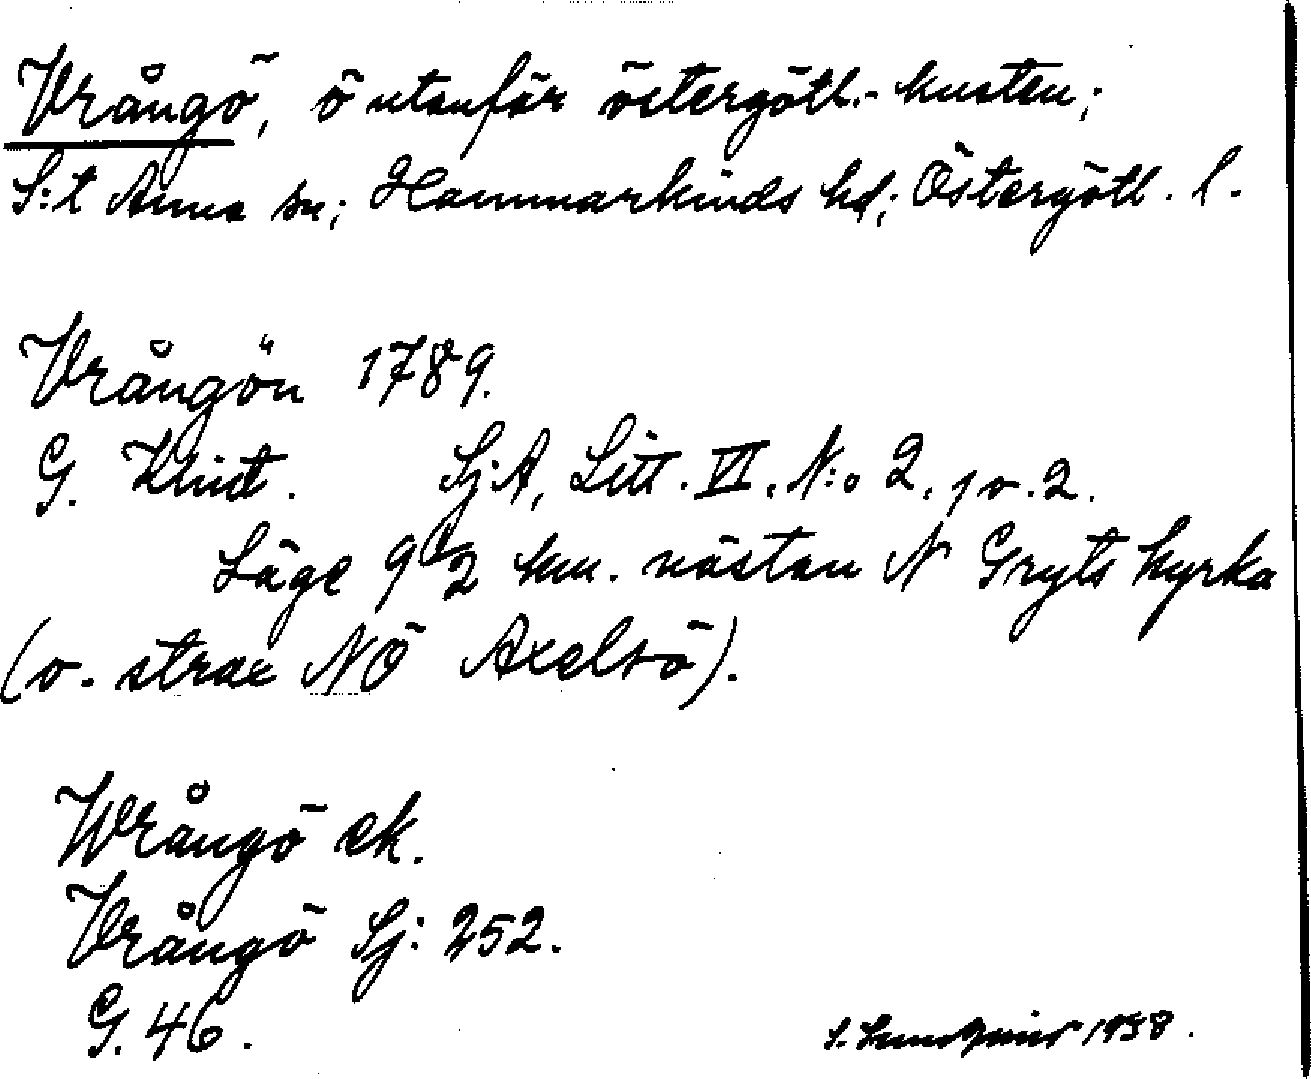 Vrångö, ö utanför östergötl.-kusten;
S:t Anna sn; Hammarkinds hd; Östergötl. l.
Vrångön 1789.
G. Klint. Sj:A, Litt. VI. N:o 2, jv. 2.
Läge 9 1/2 km. nästan N Gryts kyrka
(o. strax NÖ Axelsö).
Wrångö ek.
Vrångö Sj: 252.
G. 46.
S. Lundqvist 1938.